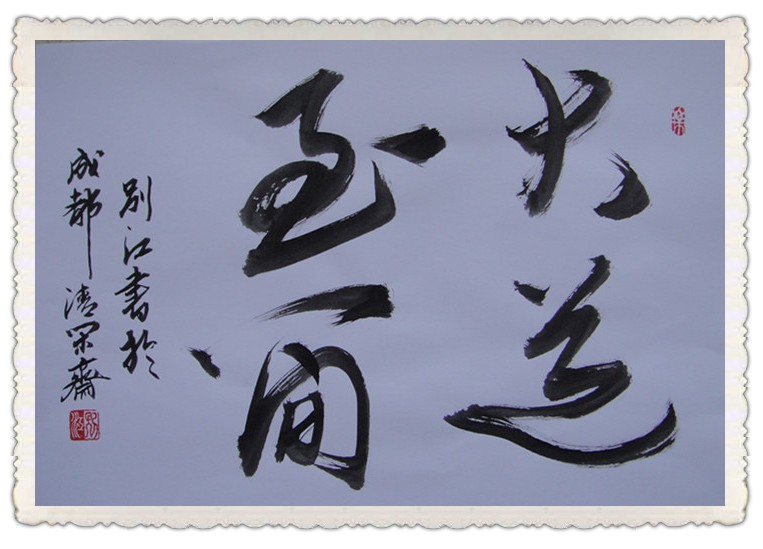 大道
至简
别江书於
成都清罘斋